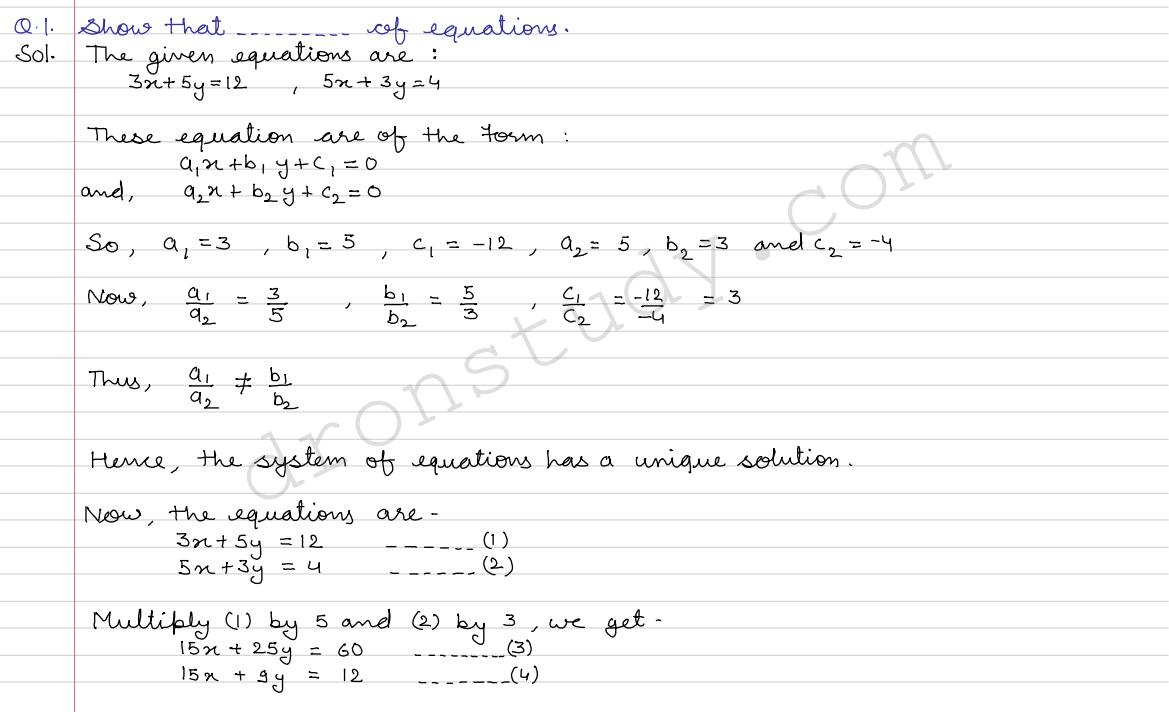 Q.1. Show that --------- of equations.
Sol. The given equations are :
3x+5y=12 , 5x+3y=4
These equation are of the form :
a₁x+b₁y+c₁=0
and, a₂x+b₂y+c₂=0
So, a₁=3 , b₁=5 , c₁=-12 , a₂=5 , b₂=3 and c₂=-4
Now, a₁/a₂ = 3/5 , b₁/b₂ = 5/3 , c₁/c₂ = -12/-4 = 3
Thus, a₁/a₂ ≠ b₁/b₂
Hence, the system of equations has a unique solution.
Now, the equations are -
3x+5y = 12 ------ (1)
5x+3y = 4 ------ (2)
Multiply (1) by 5 and (2) by 3, we get -
15x + 25y = 60 --------- (3)
15x + 9y = 12 ------- (4)
dronstudy.com